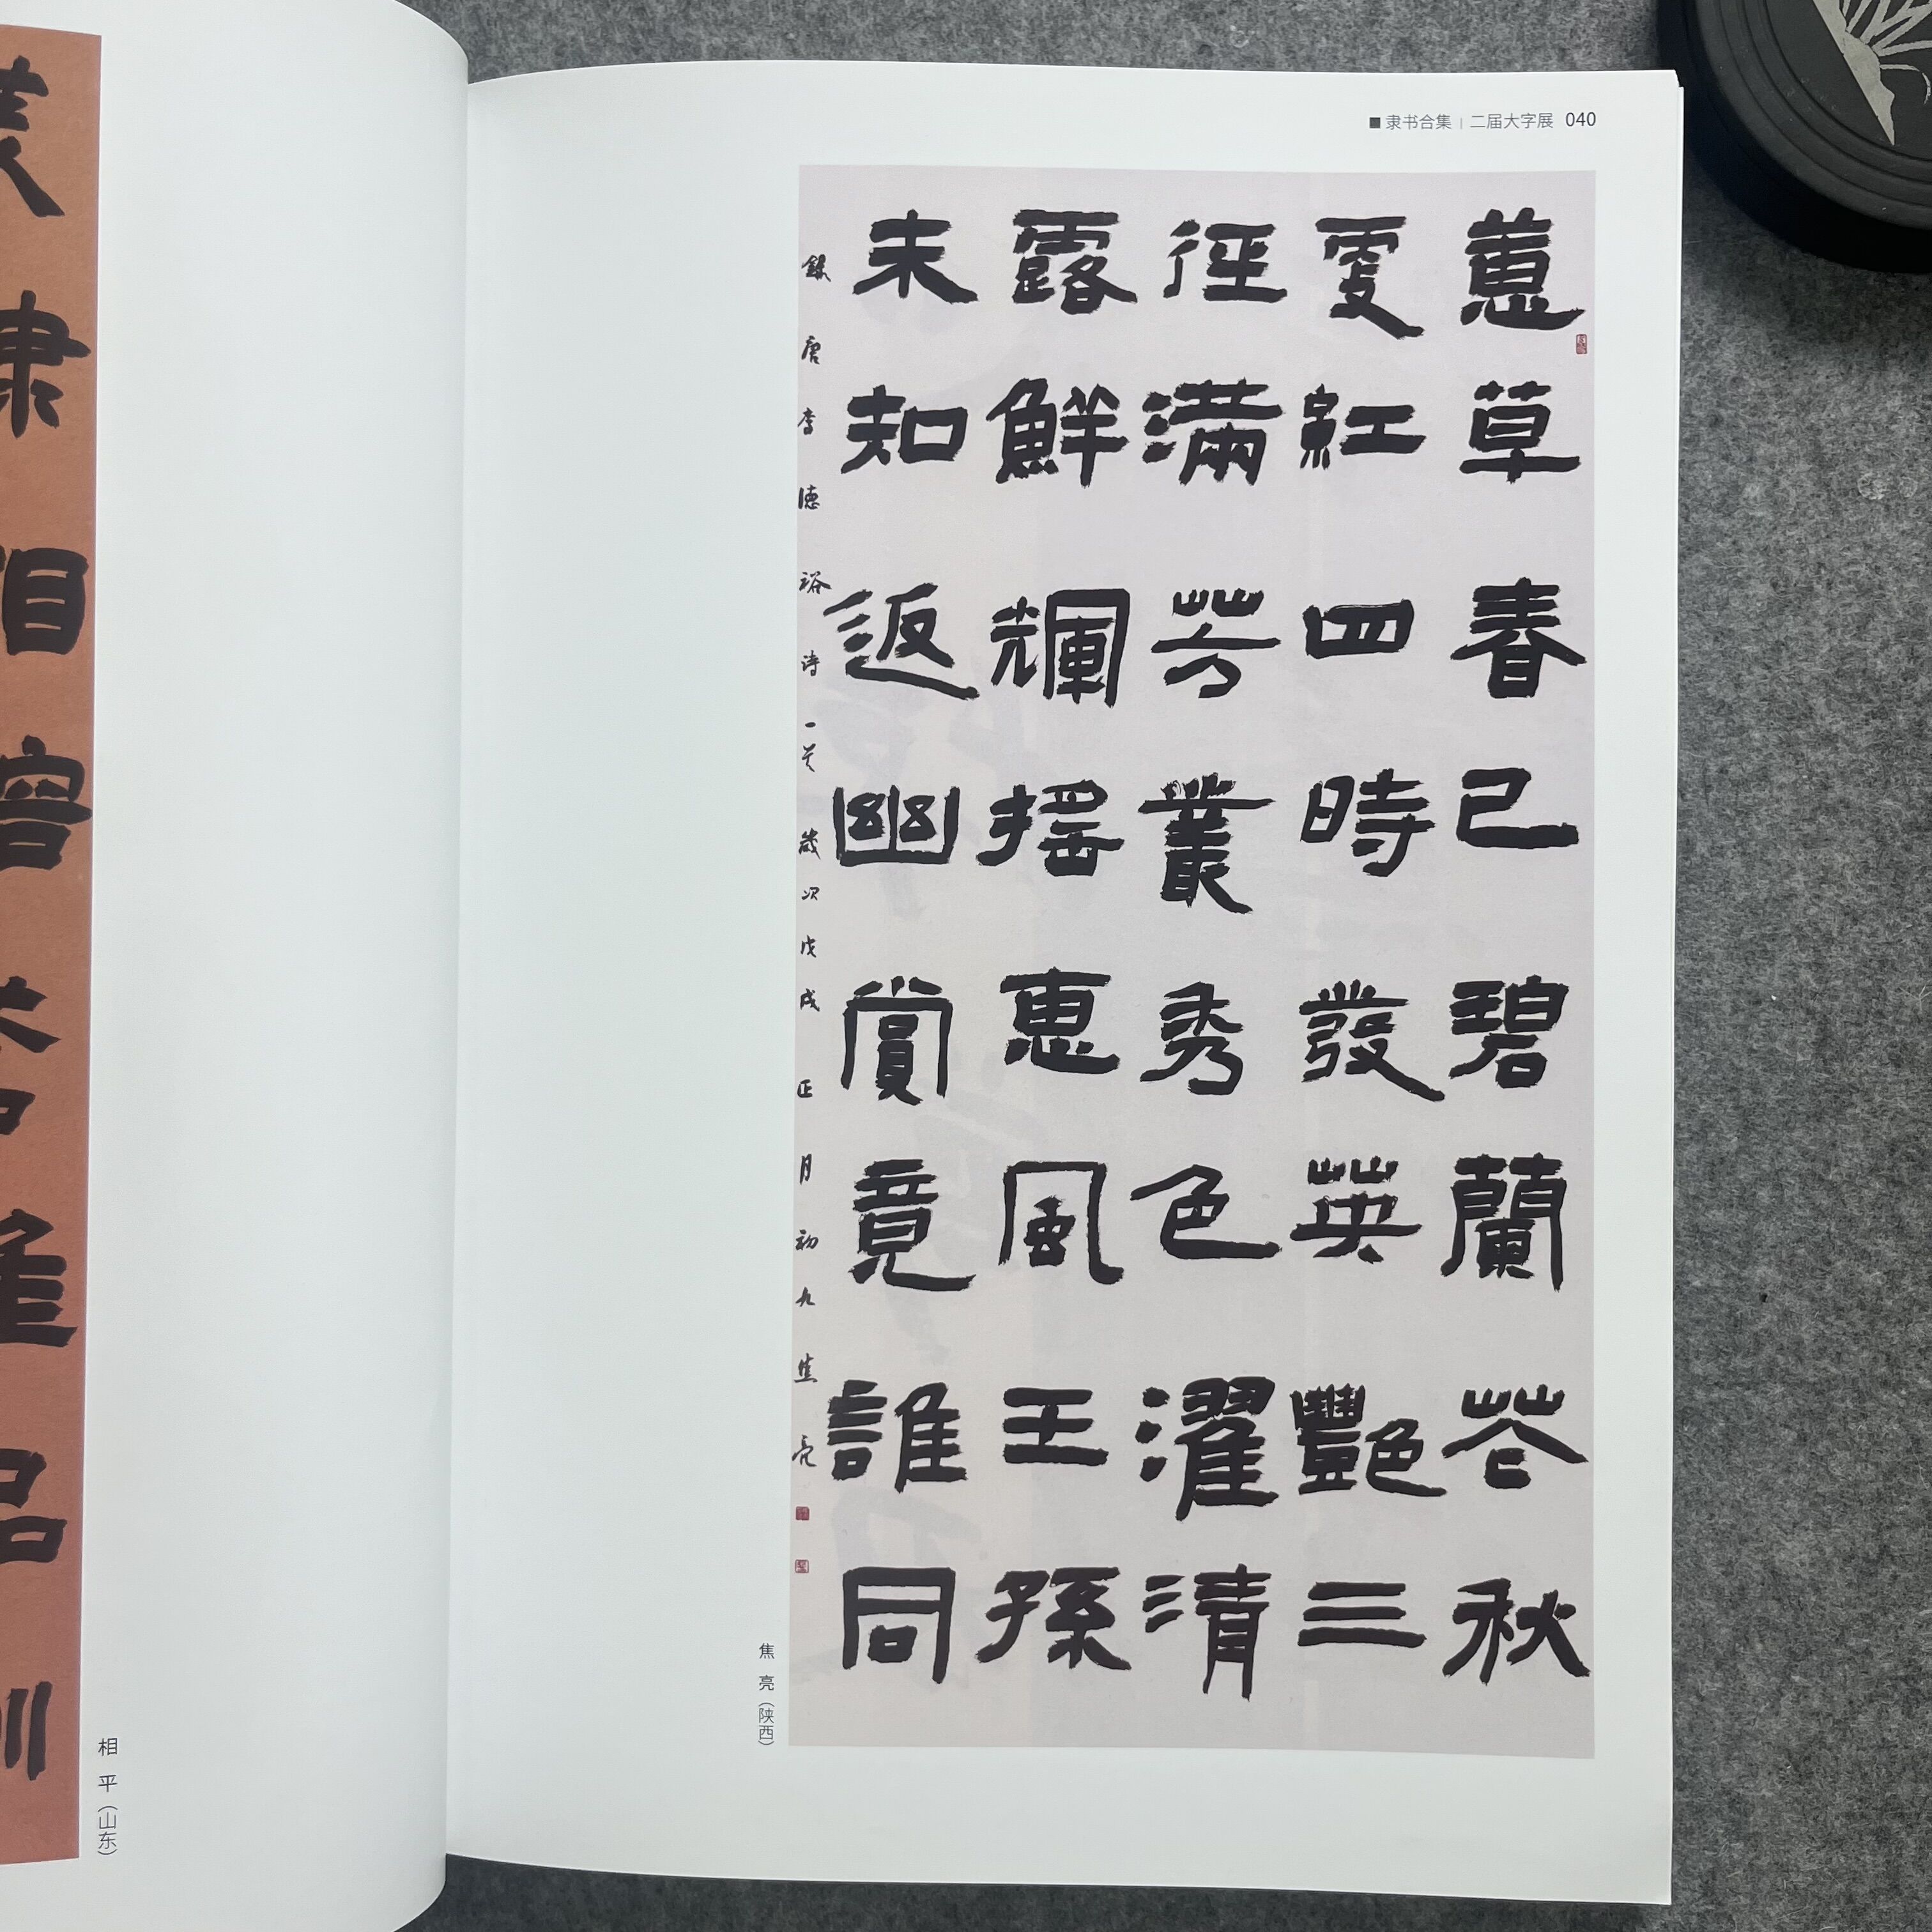 ■ 隶书合集 | 二届大字展 040
蕙草春已碧蘭苍秋
更紅四時發英艷三
徑滿芳叢秀色濯清
露鮮輝搖惠風王孫
未知返幽賞竟誰同
録唐李德裕詩一首歲次戊戌正月初九焦亮
焦 亮（陕西）
相 平（山东）